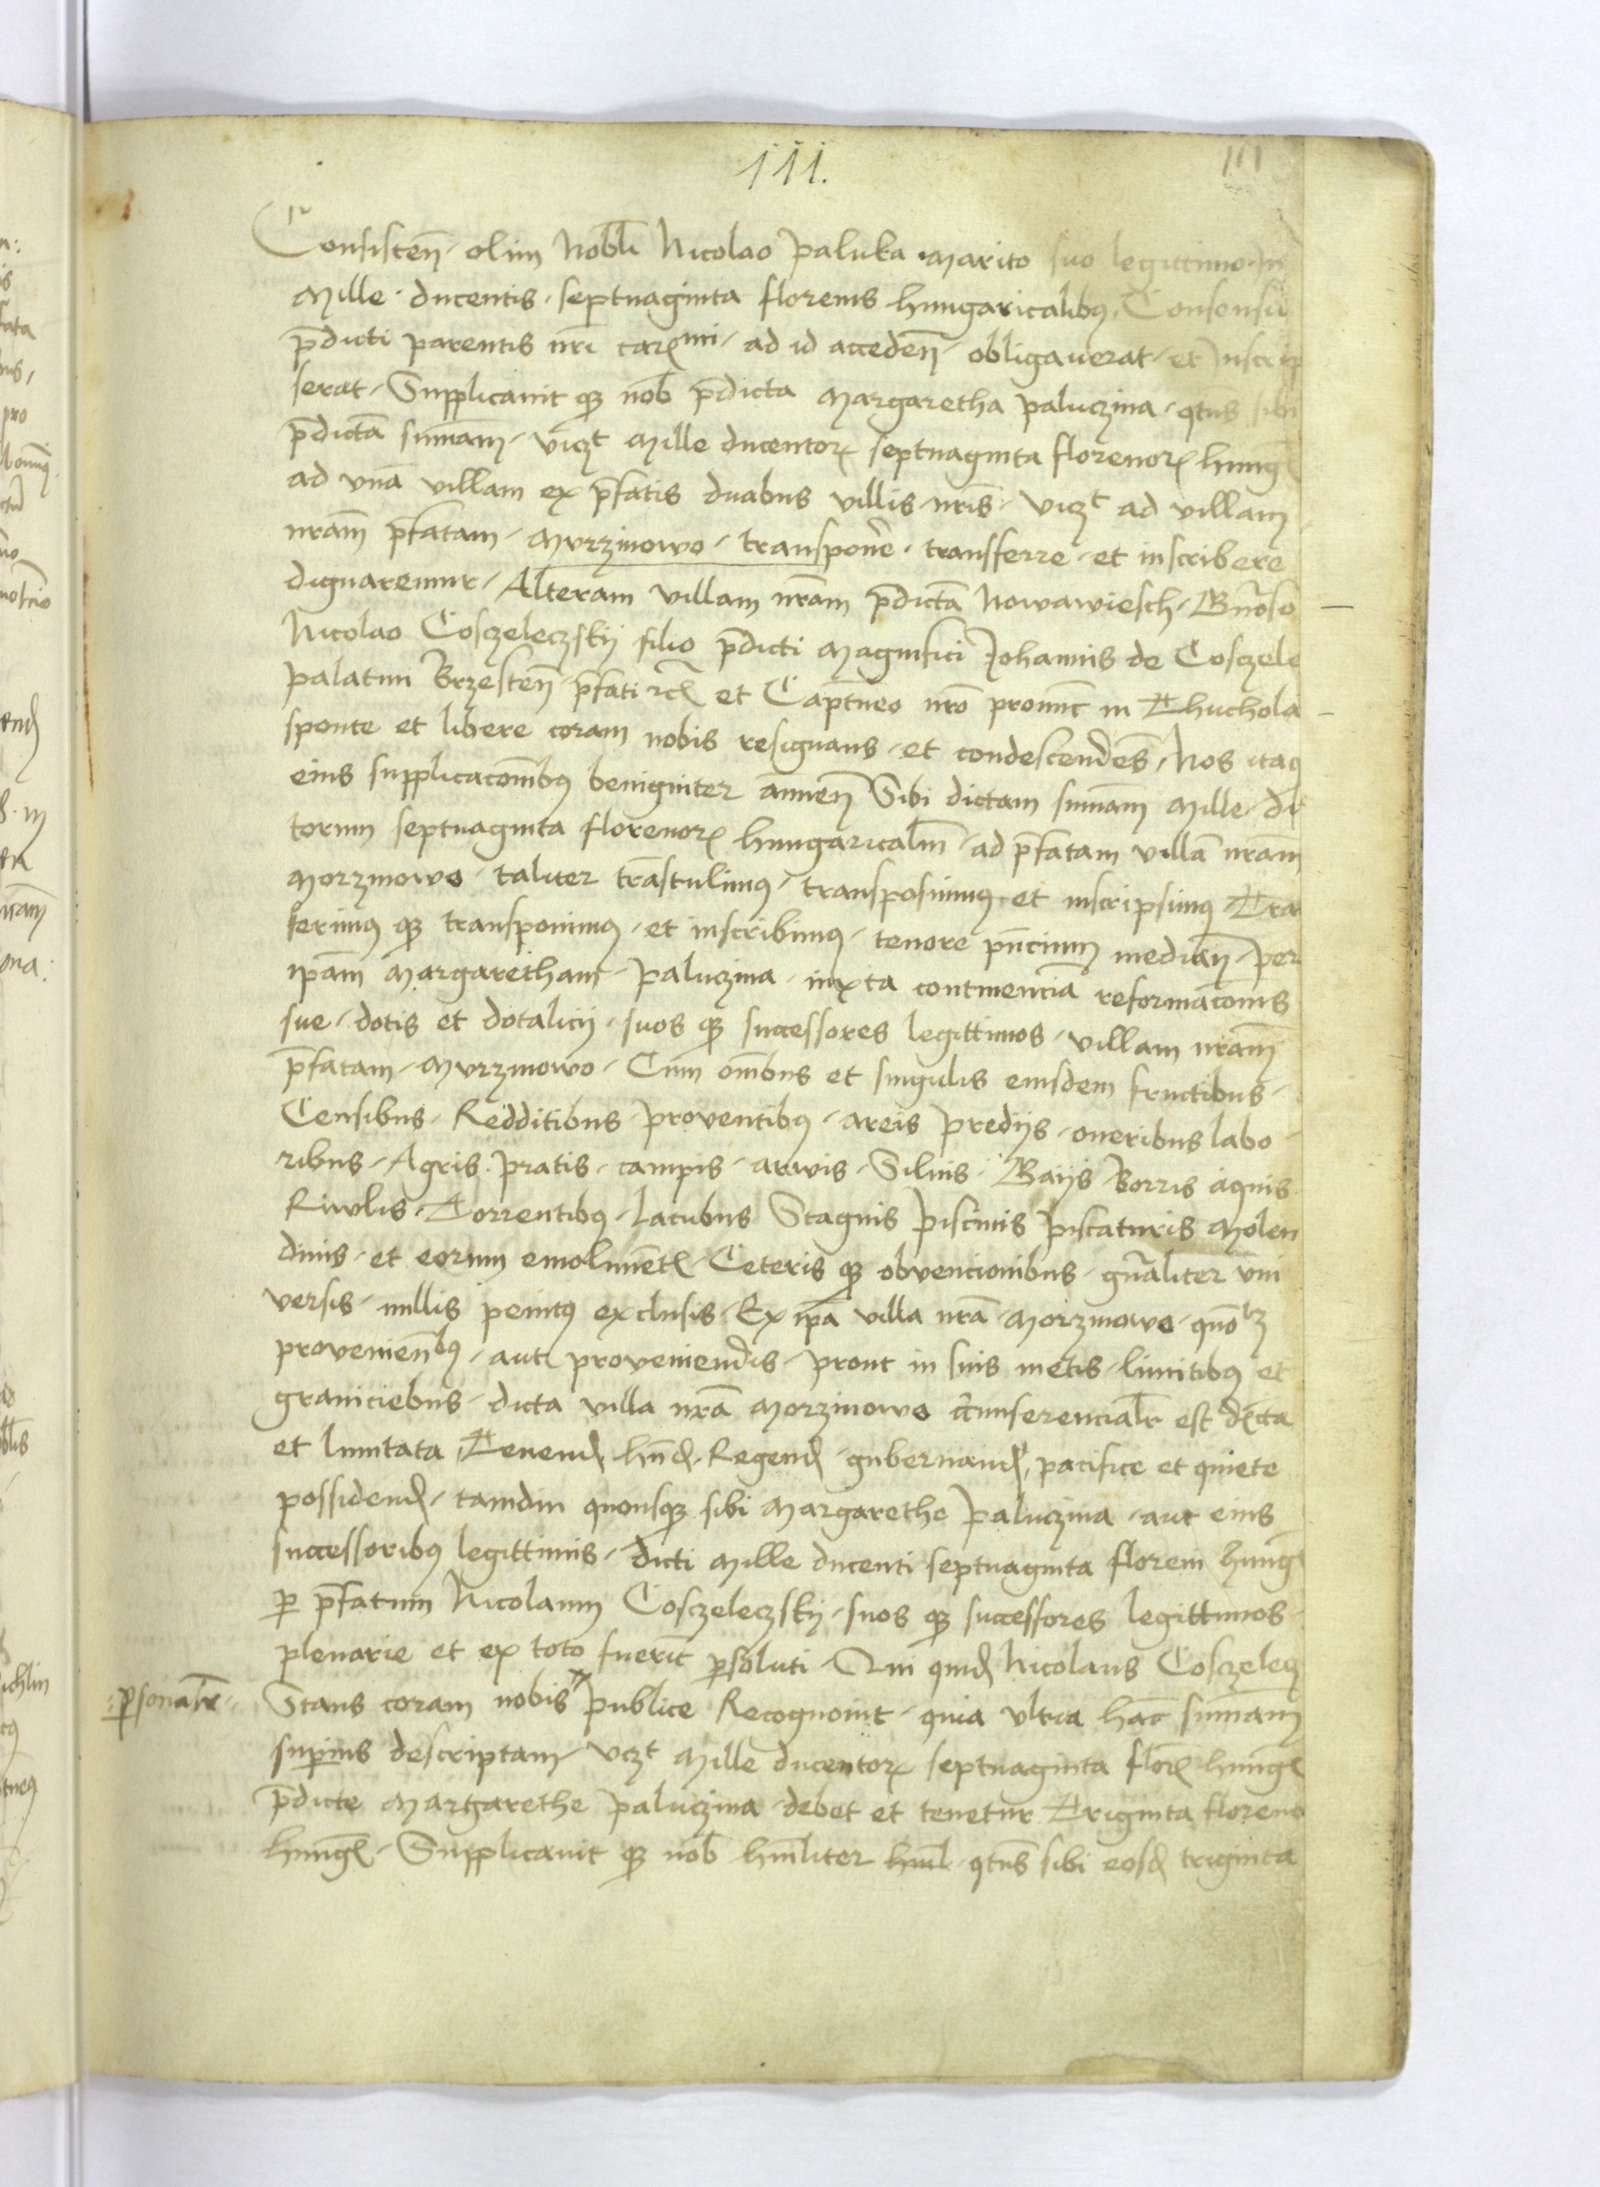 111.
111
Consisteñ · olim Nobłi Nicolao paluka · Marito suo legittimo · In
Mille · ducentis · septuaginta florenis hungaricalibꝯ · Consensu
p̄dicti parentis nr̄i carꝭmi · ad id accedeñ · obligauerat · et Inscrip
serat · Supplicauit qꝫ nob̄ p̄dicta Margaretha paluczina · qtus sibi
p̄dictā sum̄am · vicꝫt Mille ducentoꝝ septuaginta florenoꝝ hungꝭ
ad vnā villam ex p̄fatis duabus villis nr̄is · vicꝫt ad villam
nrām p̄fatam · Mvrzinowo · transpoñe · transferre · et inscribere
dignaremur · Alteram villam nrām p̄dictā Nowawiesch · Gn̄oso
Nicolao Cosczeleczskÿ filio p̄dicti Magnifici Johannis de Cosczele
palatini Brzesteñ p̄fati ꝛcꝭ et Capt̄neo nr̄o pronūc in Thuchola
sponte et libere coram nobis resignans · et condescendēs · Nos itaqꝫ
eius supplicacōnibꝯ benigniter annueñ Sibi dictam sum̄am Mille du
torum septuaginta florenoꝝ hungaricaliū · ad p̄fatam villā nrām
Morzinowo · taliter trāstulimꝯ · transposuimꝯ et inscripsimꝯ Tra
ferimꝯ qꝫ transponimꝯ · et inscribimꝯ · tenore pn̄cium medianꝭ · per
ip̄am Margaretham paluczina · iuxta continenciā reformacōnis
sue · dotis et dotalicij · suos qꝫ successores legittimos · villam nrām
p̄fatam · Mvrzinowo · Cum om̄ibus et singulis eiusdem fructibus ·
Censibus · Redditibus proventibꝯ · areis prediis · oneribus labo
ribus · Agris pratis · campis · arwis · Siluis · Gaijs Borris aquis
Riwlis · Torrentibꝯ · lacubus Stagnis piscinis piscaturis Molen
dinis · et eorum emolumētꝭ · Ceteris qꝫ obvencionibus · gn̄aliter vni
versis · nullis penitꝯ exclusis · Ex ip̄a villa nrā · Morzinowo · quōlꝫ
provenieñbꝯ · aut proveniendis · prout in suis metis · limitibꝯ et
graniciebus · dicta villa nrā Morzinowo circumferencialr̄ est dꝭcta
et limitata Tenendꝭ hn̄dꝭ · Regendꝭ · gubernandꝭ, pacifice et quiete
possidendꝭ · tamdiu quousqꝫ sibi Margarethe paluczina · aut eius
successoribꝯ legittimis · dicti Mille ducenti septuaginta floreni hungꝭ
ꝑ p̄fatum Nicolaum Cosczeleczskij · suos qꝫ successores legittimos ·
plenarie et ex toto fuerīt ꝑsoluti · Qui quidꝭ Nicolaus Cosczelecz
:ꝑsonalr̄· Stans coram nobis publice Recognouit · quia vltra hāc sum̄am
suꝑius descriptam vicꝫt Mille ducentoꝝ septuaginta florꝭ hungꝭ
p̄dicte Margarethe paluczina · debet et tenetur Triginta floreno
hungꝭ · Supplicauit qꝫ nob̄ humiliter huml qtūs sibi eosdꝭ triginta